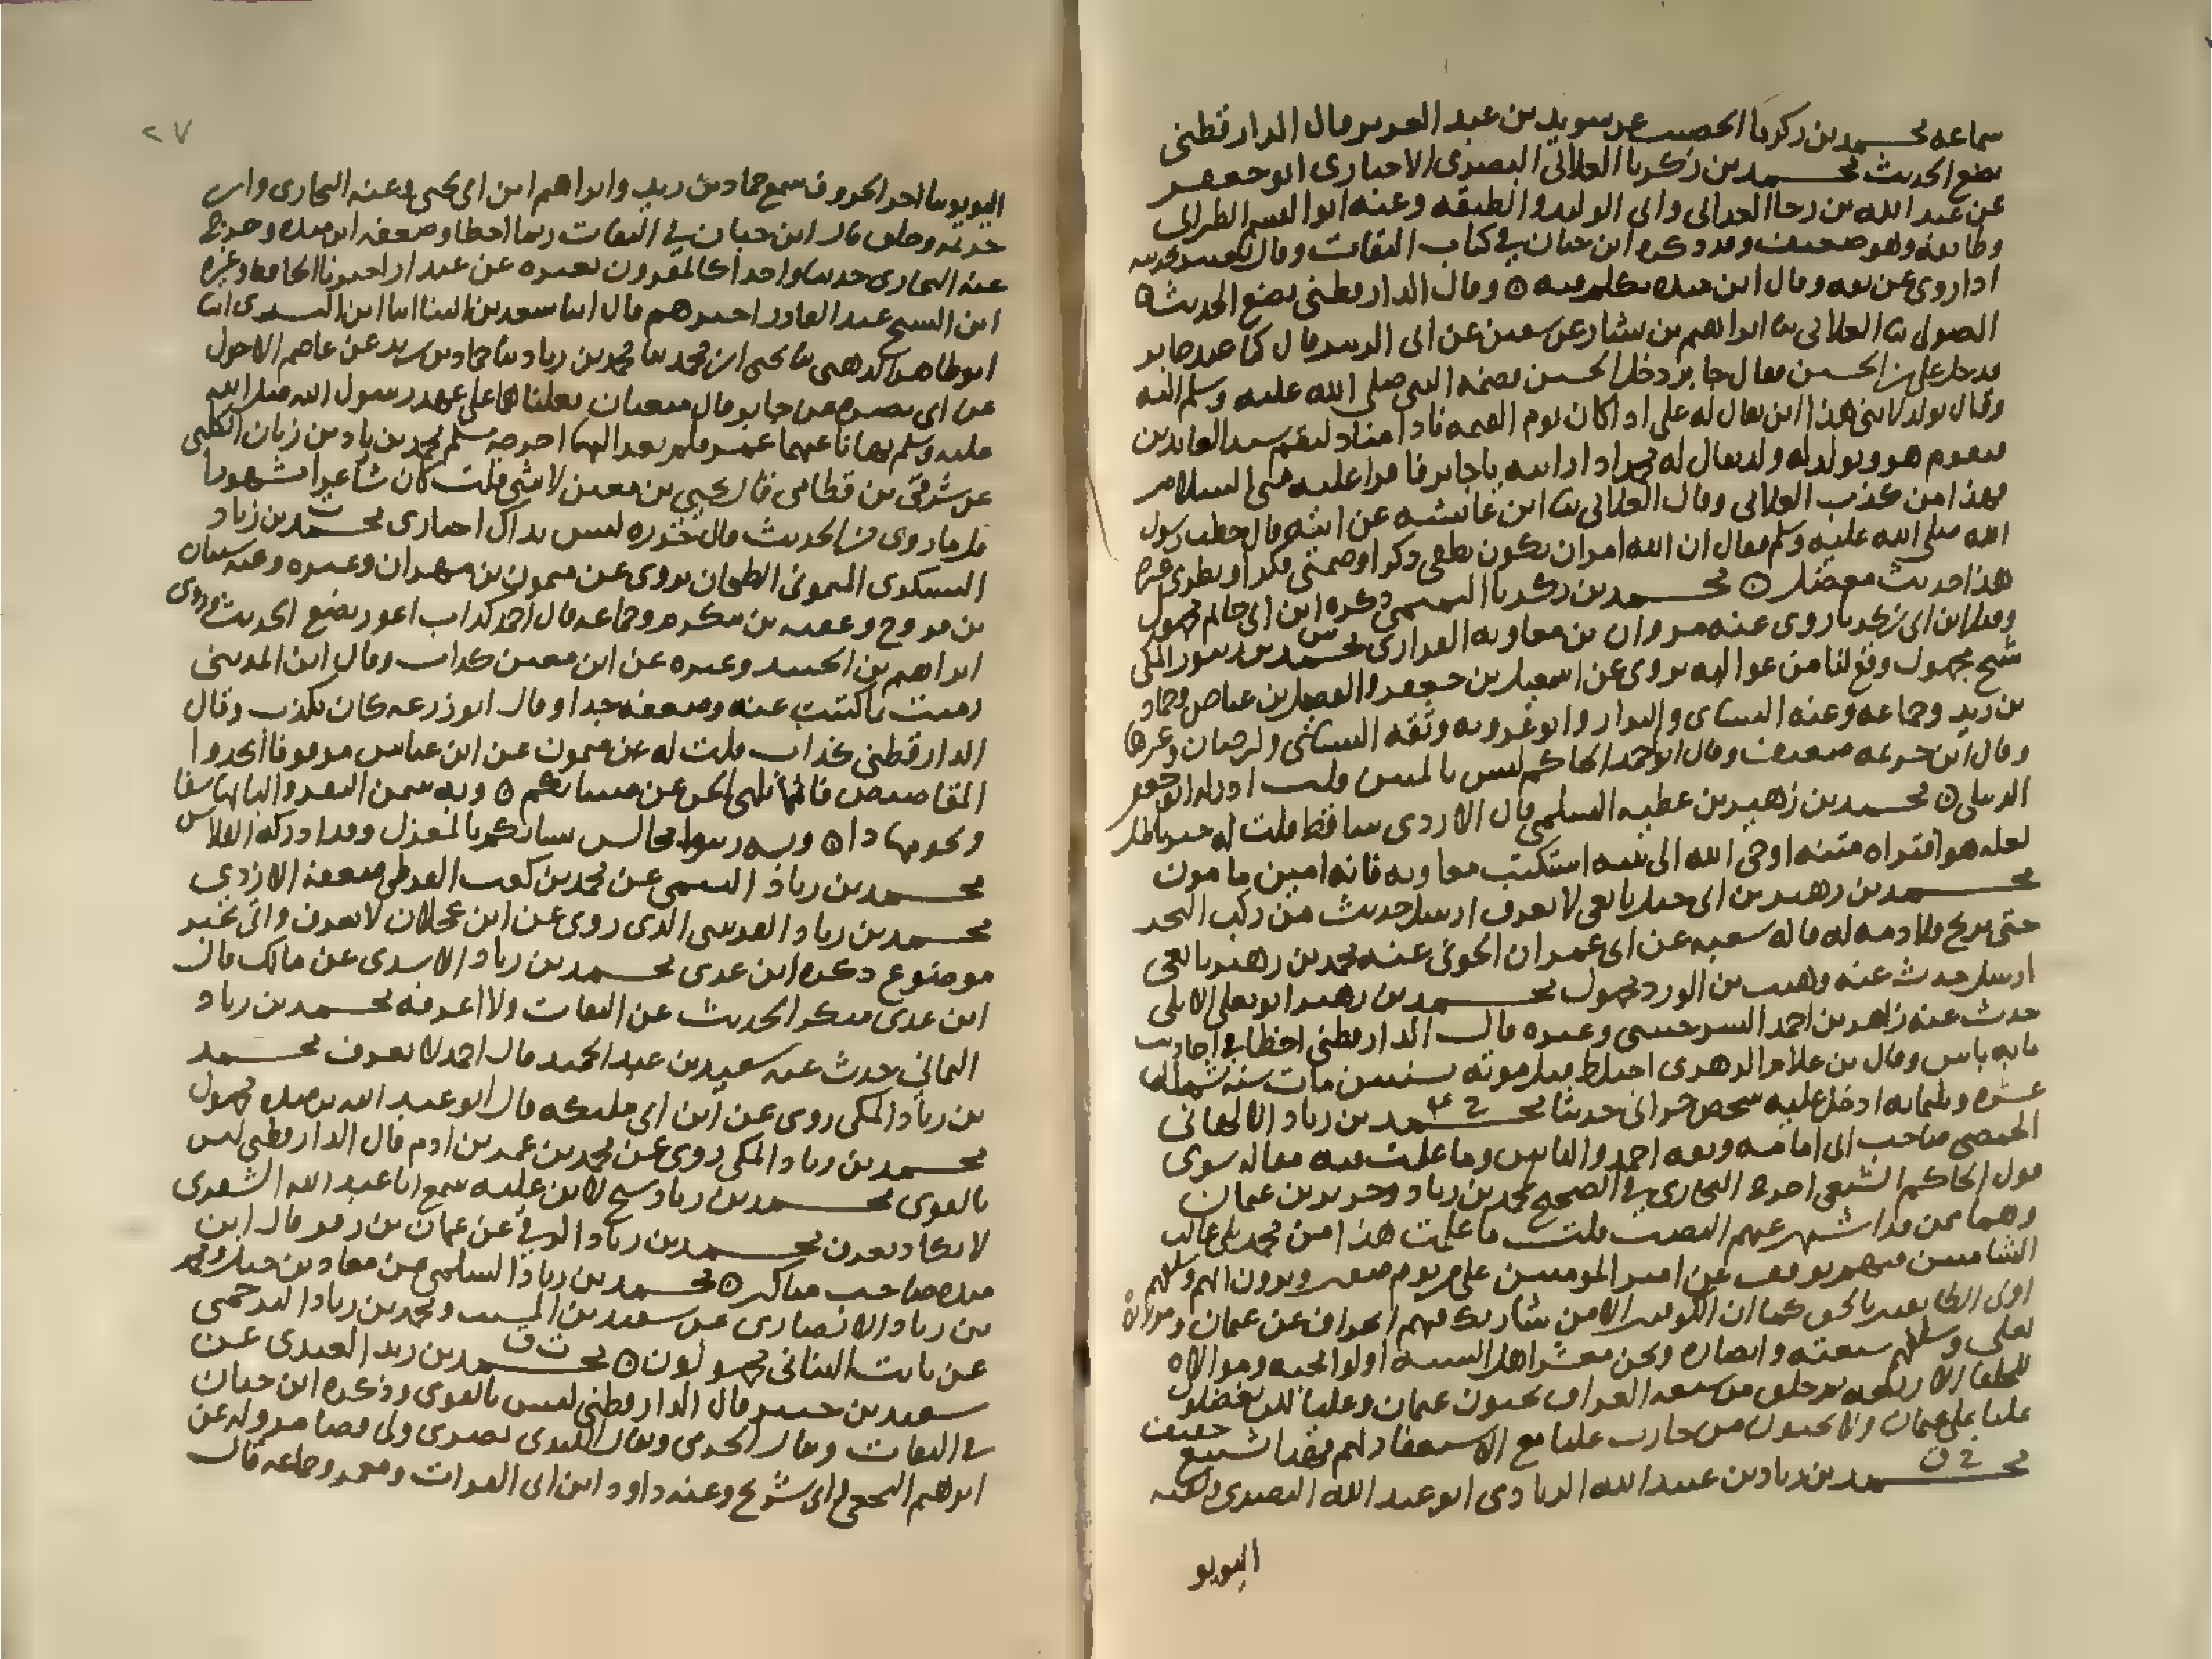 سماعه محمد بن زكريا الخصيب عن سويد بن عبد العزيز قال الدارقطني
يضع الحديث محمد بن زكريا الغلابي البصري الاخباري ابو جعفر
عن عبد الله بن رجا الغداني وابي الوليد والطبقه وعنه ابو القسم الطبراني
وطايفه وهو ضعيف وقد ذكره ابن حبان في كتاب الثقات وقال يعتبر بحديثه
اذا روى عن ثقه وقال ابن منده تكلم فيه ه وقال الدارقطني يضع الحديث ه
الصولي ثنا الغلابي ثنا ابراهيم بن بشار عن سفين عن ابي الزبير قال كنا عند جابر
فدخل علي بن الحسين فقال جابر دخل الحسين فضمه النبي صلى الله عليه وسلم اليه
وقال يولد لابني هذا ابن يقال له علي اذا كان يوم القيمه نادا مناد ليقم سيد العابدين
فيقوم هو ويولد له ولد يقال له محمد اذا رايته يا جابر فاقرا عليه مني السلام
فهذا من كذب الغلابي وقال الغلابي ثنا ابن عائشه عن ابيه قال خطب رسول
الله صلى الله عليه وسلم فقال ان الله امر ان يكون نطقي ذكرا وصمتي فكرا ونظري عبره
هذا حديث معضل ه محمد بن زكريا التميمي ذكره ابن ابي حاتم مجهول
وقيل ابن ابي زكريا روى عنه مروان بن معاويه الفزاري محمد بن زنبور المكي
شيخ مجهول وقع لنا من عواليه يروي عن اسمعيل بن جعفر والفضيل بن عياض وحماد
بن زيد وجماعه وعنه النسائي والبزار وابو عروبه وثقه النسائي وابن حبان وغيرها
وقال ابن خزيمه ضعيف وقال ابو احمد الحاكم ليس بالمتين قلت ادركه ابو جعفر
الديبلي ه محمد بن زهير بن عطيه السلمي قال الازدي ساقط قلت له خبر باطل
لعله هو افتراه متنه اوحى الله الى نبيه استكتب معاويه فانه امين مامون
محمد بن زهير بن ابي جبل تابعي لا يعرف ارسل حديث من ركب البحر
حتى يرتج فلا ذمه له قاله شعبه عن ابي عمران الجوني عنه محمد بن زهير تابعي
ارسل حدث عنه وهيب بن الورد مجهول محمد بن زهير ابو يعلى الابلي
حدث عنه زاهر بن احمد السرخسي وغيره قال الدارقطني اخطا في احاديث
ما به باس وقال بن غلام الزهري اختلط قبل موته بسنتين مات سنه ثمان
عشره وثلثمايه ادخل عليه شخص حراني حديثا محمد خ ع بن زياد الالهاني
الحمصي صاحب ابي امامه وثقه احمد والناس وما علمت فيه مقاله سوى
قول الحاكم الشيعي اخرج البخاري في الصحيح لمحمد بن زياد وحريز بن عثمان
وهما ممن قد اشتهر عنهم النصب قلت ما علمت هذا من محمد بلى غالب
الشاميين فيهم توقف عن امير المومنين علي من يوم صفين ويرون انهم وسلفهم
اولى الطايفتين بالحق كما ان الكوفيين الا من شا ربك فيهم انحراف عن عثمان وموالاه
لعلي وسلفهم شيعته وانصاره ونحن معشر اهل السنه اولوا محبه وموالاه
للخلفا الاربعه ثم خلق من شيعه العراق يحبون عثمان وعليا لكن يفضلون
عليا على عثمان ولا يحبون من حارب عليا مع الاستغفار لهم فهذا تشيع خفيف
محمد خ ق بن زياد بن عبيد الله الزيادي ابو عبد الله البصري ولقبه
اليويو
٢٧
اليويو بيا اخر الحروف سمع حماد بن زيد وابراهيم ابن ابي يحيى وعنه البخاري وابن
خزيمه وخلق قال ابن حبان في الثقات ربما اخطا وضعفه ابن منده وخرج
عنه البخاري حديثا واحدا كالمقرون بغيره عن غندر اخبرنا الحافظ وغيره
ابن الشيخ عبد القادر اخبرهم قال انبا سعيد بن البنا انبا ابن البسري انبا
ابو طاهر الذهبي ثنا يحيى ابن محمد ثنا محمد بن زياد ثنا حماد بن زيد عن عاصم الاحول
عن ابي نضره عن جابر قال متعتان فعلناهما على عهد رسول الله صلى الله
عليه وسلم نهانا عنهما عمر فلم نعد اليهما اخرجه مسلم محمد بن زياد بن زبان الكلبي
عن شرقي بن قطامي قال يحيى بن معين لا شي قلت كان شاعرا مشهورا
قل ما روى من الحديث قال جزره ليس بذاك اخباري محمد ت بن زياد
اليشكري الميموني الطحان يروي عن ميمون بن مهران وغيره وعنه شيبان
بن فروخ وعقبه بن مكرم وجماعه قال احمد كذاب اعور يضع الحديث وروى
ابراهيم بن الجنيد وغيره عن ابن معين كذاب وقال ابن المديني
رميت بما كتبت عنه وضعفه جدا وقال ابو زرعه كان يكذب وقال
الدارقطني كذاب قلت له عن ميمون عن ابن عباس مرفوعا اتخذوا
المقاصيص فانها تلهي الجن عن صبيانكم ه وبه سمن البقر والبانها شفا
ولحومها دا ه وبه زينوا مجالس نسائكم بالمغزل وقد ادركه الفلاس
محمد بن زياد التميمي عن محمد بن كعب القرظي ضعفه الازدي
محمد بن زياد القرشي الذي روى عن ابن عجلان لا يعرف واتى بخبر
موضوع ذكره ابن عدي محمد بن زياد الاسدي عن مالك قال
ابن عدي منكر الحديث عن الثقات ولا اعرفه محمد بن زياد
اليماني حدث عنه سعيد بن عبد الحميد قال احمد لا يعرف محمد
بن زياد المكي روى عن ابن ابي مليكه قال ابو عبد الله بن منده مجهول
محمد بن زياد المكي روى عن محمد بن عمر بن ادم قال الدارقطني ليس
بالقوي محمد بن زياد شيخ لابن عليه سمع ابا عبد الله الشقري
لا يكاد يعرف محمد بن زياد الرقي عن عثمان بن زفر قال ابن
منده صاحب مناكير ه محمد بن زياد السلمي عن معاذ بن جبل ومحمد
بن زياد الانصاري عن سعيد بن المسيب ومحمد بن زياد البرجمي
عن ثابت البناني مجهولون ه محمد ت ق بن زيد العبدي عن
سعيد بن جبير قال الدارقطني ليس بالقوي وذكره ابن حبان
في الثقات وقال الجرمي ويقال الكندي بصري ولي قضا مرو له عن
ابراهيم النخعي وابي شريح وعنه داود ابن ابي الفرات ومعمر وجماعه قال